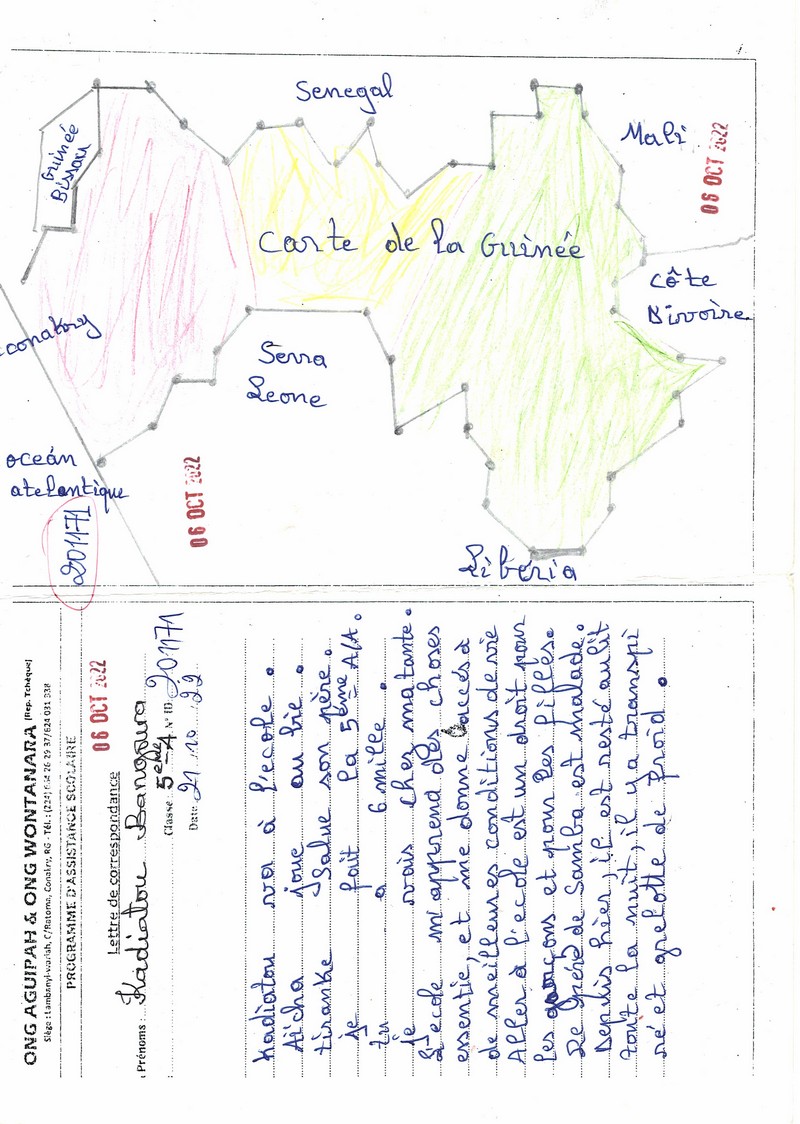 Senegal
Mali
Guinée
Bissau
06 OCT 2022
Carte de la Guinée
côte
Divoire
conakry
Serra
Leone
oceán
atelantique
06 OCT 2022
201171
Libéria
ONG AGUIPAH & ONG WONTANARA (Rep. Tchèque)
PROGRAMME D'ASSISTANCE SCOLAIRE
06 OCT 2022
Lettre de correspondance
Prénoms: Kadiatou Bangoura
Classe: 5ème A N° ID: 201171
Date: 21 10 22
Kadiatou va à l'ecole.
Aïcha joue au bie.
tiranke Salue son père.
je fait la 5ème A/A.
tu a 6 mille.
je vais chez matante.
L'ecole m'apprend des choses
essentie, et me donne l'accès à
de meilleures conditions de vie
Aller à l'ecole est un droit pour
les garçons et pour les filles.
Le frère de Samba est malade.
Depuis hier, il est resté aulit
toute la nuit, il y a transpi
ré et grelotté de froid.